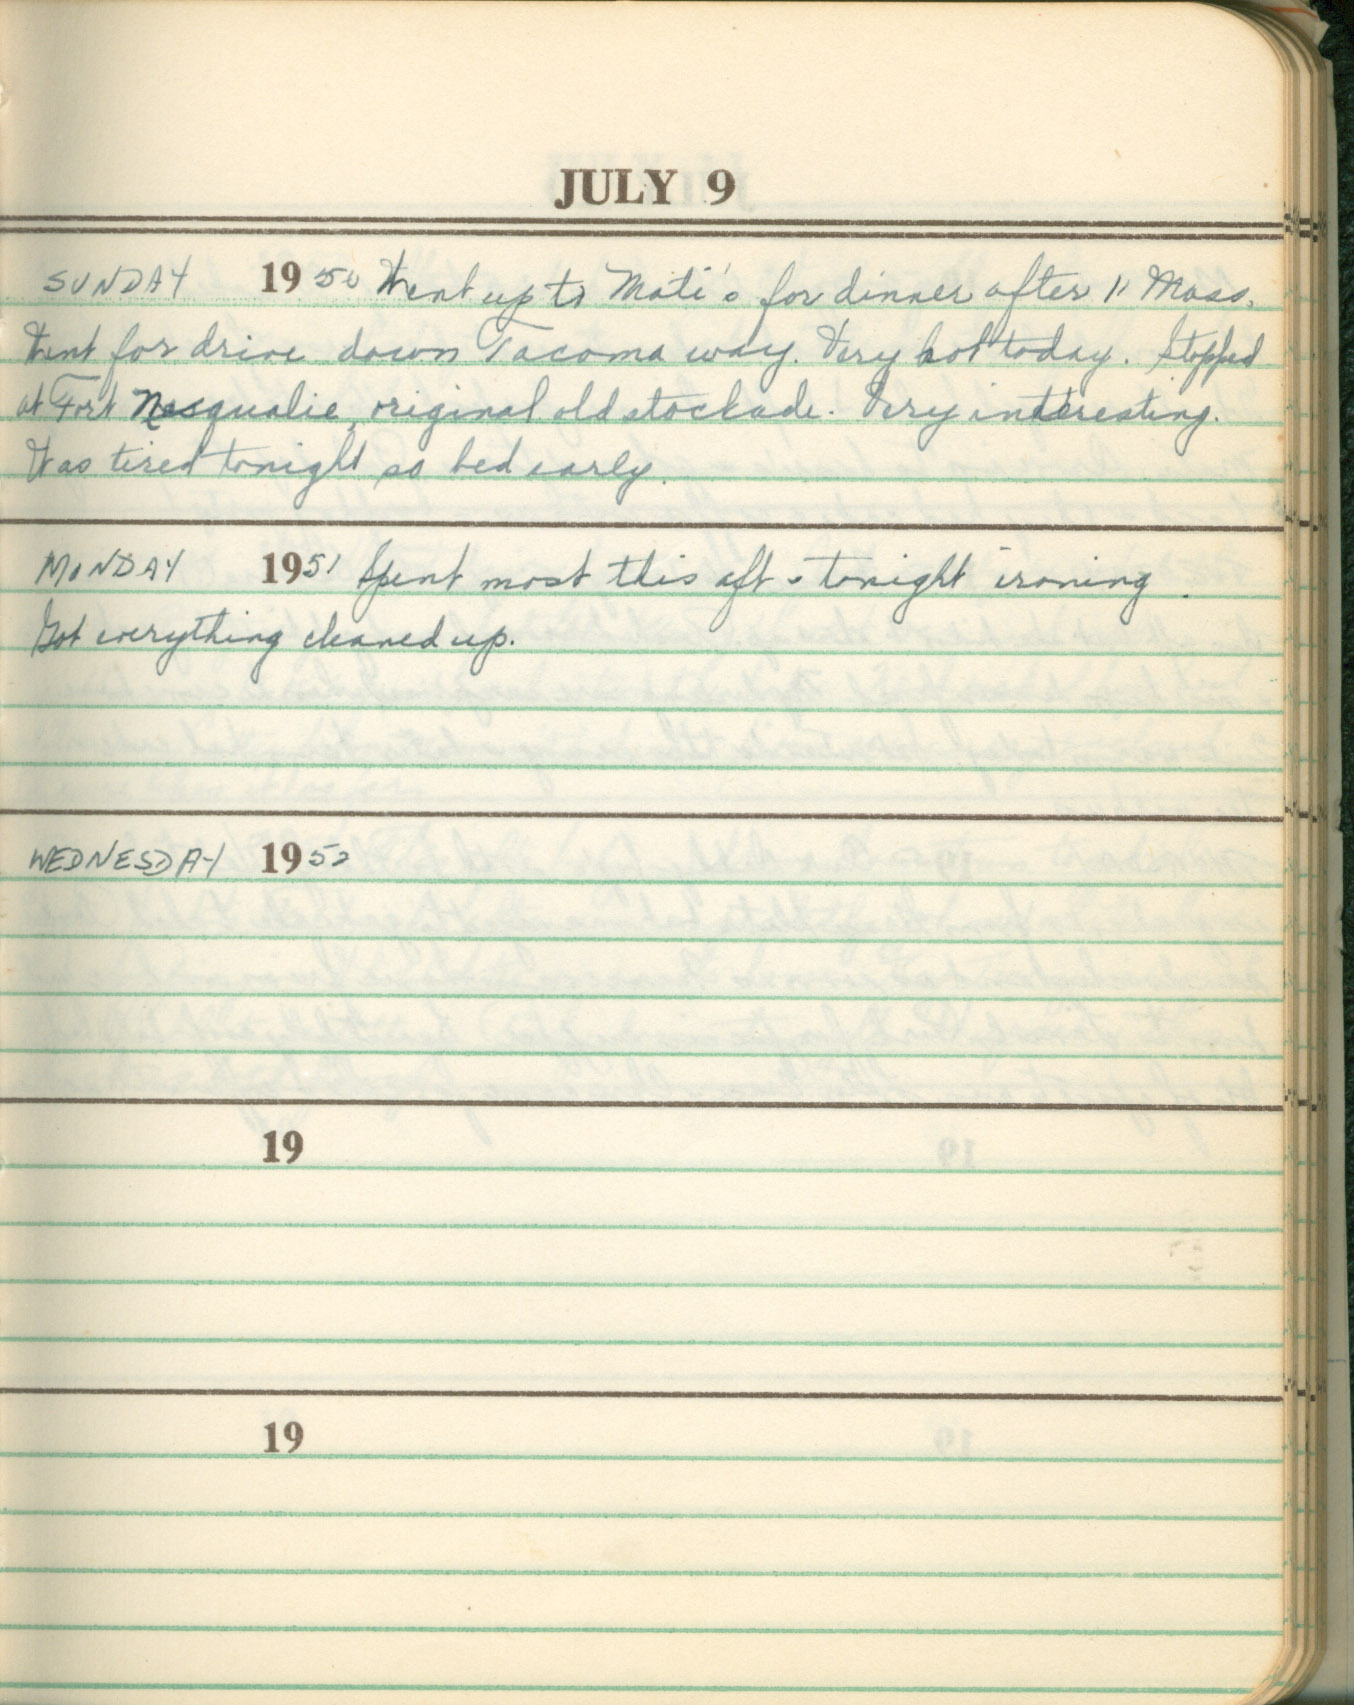 JULY 9
SUNDAY 1950 Went up to Mati's for dinner after 11 Mass.
Went for drive down Tacoma way. Very hot today. Stopped
at Fort Nesqualie, original old stockade. Very interesting.
Was tired tonight so bed early.
MONDAY 1951 Spent most this aft & tonight ironing.
Got everything cleaned up.
WEDNESDAY 1952
19
19